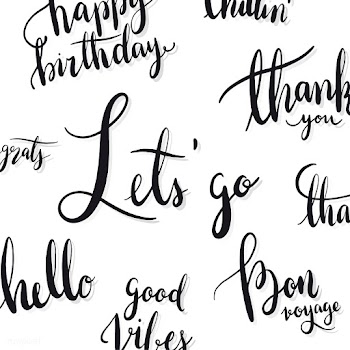 happy
birthday
Chillin'
thank
you
grats
Lets' go
tha
hello
good
vibes
Bon
voyage